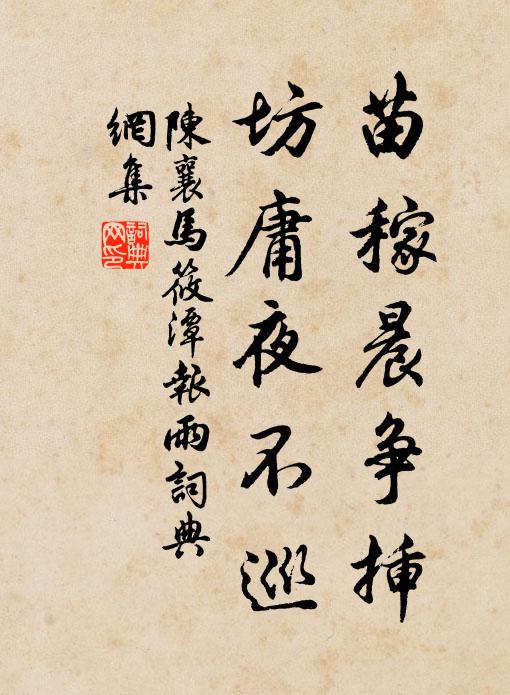 苗稼晨争挿
坊庸夜不巡
陳襄馬筱潭報雨詞典
網集
詞典
网印